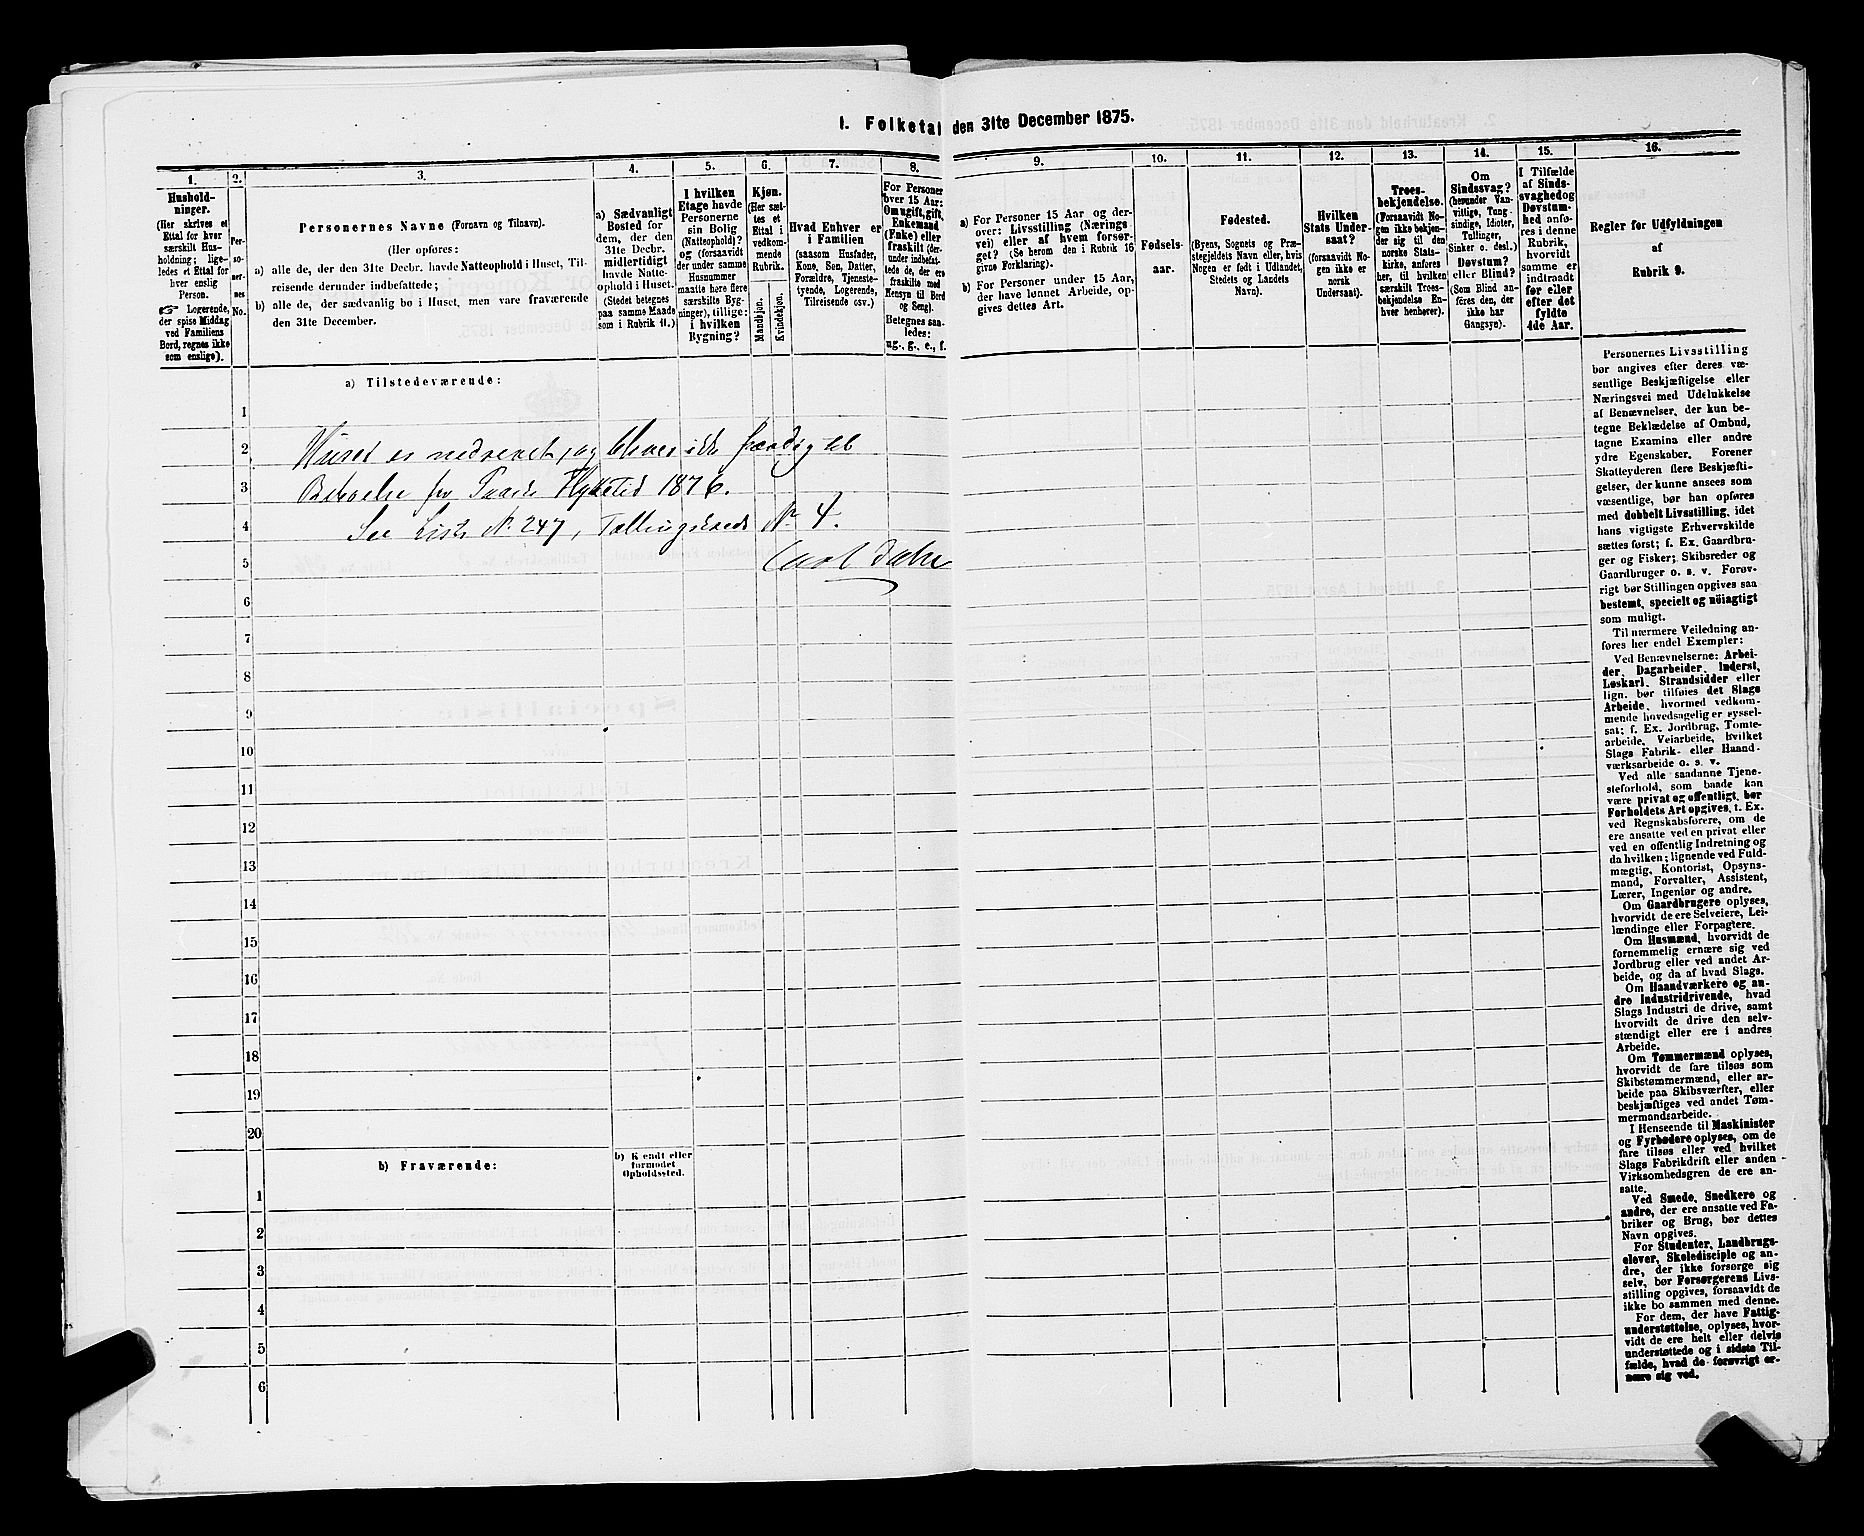 1. Folketal den 31te December 1875.
1.
Hushold-
ninger.
(Her skrives et
Ettal for hver
særskilt Hus-
holdning; lige-
ledes et Ettal for
hver enslig
Person.
☞ Logerende,
der spise Middag
ved Familiens
Bord, regnes ikke
som enslige).
2.
Per-
so-
ner-
nes
No.
3.
Personernes Navne (Fornavn og Tilnavn).
(Her opføres:
a) alle de, der den 31te Decbr. havde Natteophold i Huset, Til-
reisende derunder indbefattede;
b) alle de, der sædvanlig bo i Huset, men vare fraværende
den 31te December.
4.
a) Sædvanligt
Bosted for
dem, der den
31te Decbr.
midlertidigt
havde Natte-
ophold i Huset.
(Stedet betegnes
paa samme Maade
som i Rubrik 11.)
5.
I hvilken
Etage havde
Personerne
sin Bolig
(Natteophold)?
og (forsaavidt
der under samme
Husnummer
maatte høre flere
særskilte Byg-
ninger), tillige:
i hvilken
Bygning?
6.
Kjøn.
(Her sæt-
tes et
Ettal i
vedkom-
mende
Rubrik.
Mandkjøn.
Kvindekjøn.
7.
Hvad Enhver er
i Familien
(saasom Husfader,
Kone, Søn, Datter,
Forældre, Tjeneste-
tyende, Logerende,
Tilreisende osv.)
8.
For Personer
over 15 Aar:
Om ugift, gift,
Enkemand
(Enke) eller
fraskilt (der-
under indbefat-
tede de, der ere
fraskilte med
Hensyn til Bord
og Seng).
Betegnes saa-
ledes:
ug., g., e., f.
9.
a) For Personer 15 Aar og der-
over: Livsstilling (Nærings-
vei) eller af hvem forsør-
get? (Se herom den i Rubrik 16
givne Forklaring).
b) For Personer under 15 Aar,
der have lønnet Arbeide, op-
gives dettes Art.
10.
Fødsels-
aar.
11.
Fødested.
(Byens, Sognets og Præ-
stegjeldets Navn eller, hvis
Nogen er født i Udlandet,
Stedets og Landets
Navn).
12.
Hvilken
Stats Under-
saat?
(forsaavidt No-
gen ikke er
norsk
Undersaat).
13.
Troes-
bekjendelse.
(Forsaavidt No-
gen ikke bekjen-
der sig til den
norske Stats-
kirke, anføres
her, til hvilken
særskilt Troes-
bekjendelse En-
hver henhører).
14.
Om
Sindssvag?
(herunder Van-
vittige, Tung-
sindige, Idioter,
Tullinger,
Sinker o. desl.)
Døvstum?
eller Blind?
(Som Blind an-
føres den, der
ikke har
Gangsyn).
15.
I Tilfælde
af Sinds-
svaghed og
Døvstum-
hed anfø-
res i denne
Rubrik,
hvorvidt
samme er
indtraadt
før eller
efter det
fyldte
4de Aar.
16.
Regler for Udfyldningen
af
Rubrik 9.
a) Tilstedeværende:
1
2
Huset er nedrevet, og bliver ikke færdig til
3
Beboelse før Flyttetid 1876.
4
See Liste No. 247, Tællingskreds No. 4.
5
Carl
6
7
8
9
10
11
12
13
14
15
16
17
18
19
20
b) Fraværende:
b) Kjendt eller
formodet
Opholdssted.
1
2
3
4
5
6
Personernes Livsstilling
bør angives efter deres væ-
sentlige Beskjæftigelse eller
Næringsvei med Udelukkelse
af Benævnelser, der kun be-
tegne Beklædelse af Ombud,
tagne Examina eller andre
ydre Egenskaber. Forener
Skatteyderen flere Beskjæfti-
gelser, der kunne ansees som
væsentlige, bør han opføres
med dobbelt Livsstilling, idet
hans vigtigste Erhvervskilde
sættes først; f. Ex. Gaardbru-
ger og Fisker; Skibsreder og
Gaardbruger o. s. v. Forøv-
rigt bør Stillingen opgives saa
bestemt, specielt og nöiagtigt
som muligt.
Til nærmere Veiledning an-
føres her endel Exempler:
Ved Benævnelserne: Arbei-
der, Dagarbeider, Inderst,
Løskarl, Strandsidder eller
lign. bør tilføies det Slags
Arbeide, hvormed vedkom-
mende hovedsagelig er syssel-
sat; f. Ex. Jordbrug, Tomte-
arbeide, Veiarbeide, hvilket
Slags Fabrik- eller Haand-
værksarbeide o. s. v.
Ved alle saadanne Tjene-
steforhold, som baade kan
være privat og offentligt, bør
Forholdets Art opgives, f. Ex.
ved Regnskabsførere, om de
ere ansatte ved en privat eller
ved en offentlig Indretning og
da hvilken; lignende ved Fuld-
mægtig, Kontorist, Opsyns-
mand, Forvalter, Assistent,
Lærer, Ingeniør og andre.
Om Gaardbrugere oplyses,
hvorvidt de ere Selveiere, Lei-
lændinge eller Forpagtere.
Om Husmænd, hvorvidt de
fornemmelig ernære sig ved
Jordbrug eller ved andet Ar-
beide, og da af hvad Slags.
Om Haandværkere og an-
dre Industridrivende, hvad
Slags Industri de drive, samt
hvorvidt de drive den selv-
stændigt eller ere i andres
Arbeide.
Om Tømmermænd oplyses,
hvorvidt de fare tilsøs som
Skibstømmermænd, eller ar-
beide paa Skibsværfter, eller
beskjæftiges ved andet Tøm-
mermandsarbeide.
I Henseende til Maskinister
og Fyrbødere oplyses, om de
fare tilsøs eller ved hvilket
Slags Fabrikdrift eller anden
Virksomhedsgren de ere an-
satte.
Ved Smede, Snedkere og
andre, der ere ansatte ved Fa-
briker og Brug, bør dettes
Navn opgives.
For Studenter, Landbrugs-
elever, Skoledisciple og an-
dre, der ikke forsørge sig
selv, bør Forsørgerens Livs-
stilling opgives, forsaavidt de
ikke bo sammen med denne.
For dem, der have Fattig-
understøttelse, oplyses, hvor-
vidt de ere helt eller delvis
understøttede og i sidste Til-
fælde, hvad de forøvrigt er-
nære sig ved.